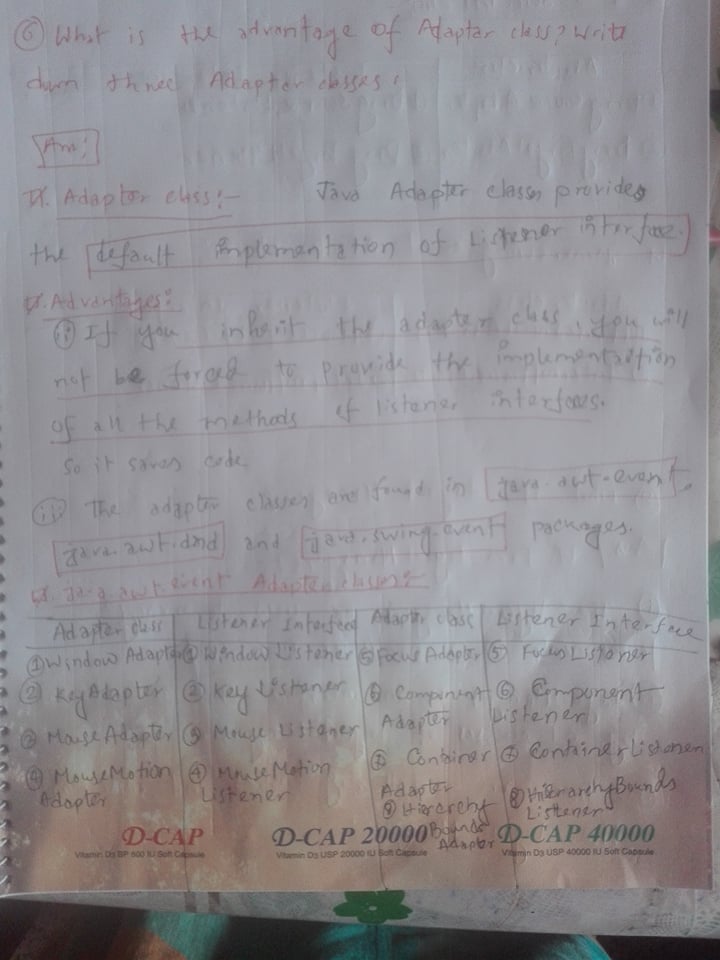 ⑥ What is the advantage of Adapter class? Write
down three Adapter classes:
Ans:
Adapter class:- Java Adapter classes provides
the default implementation of Listener interface.
Advantages:
(i) If you inherit the adapter class, you will
not be forced to provide the implementation
of all the methods of listener interfaces.
So it saves code
(ii) The adapter classes are found in java.awt.event,
java.awt.dnd and java.swing.event packages.
java.awt.event Adapter classes:-
Adapter class Listener Interface Adapter class Listener Interface
① Window Adapter ① Window Listener ⑤ Focus Adapter ⑤ Focus Listener
② Key Adapter ② Key Listener ⑥ Component ⑥ Component
Adapter Listener
③ Mouse Adapter ③ Mouse Listener ⑦ Container ⑦ Container Listener
④ MouseMotion ④ MouseMotion Adapter ⑧ HierarchyBounds
Adapter Listener ⑧ Hierarchy Listener
Bounds
Adapter
D-CAP D-CAP 20000 D-CAP 40000
Vitamin D3 BP 800 IU Soft Capsule Vitamin D3 USP 20000 IU Soft Capsule Vitamin D3 USP 40000 IU Soft Capsule